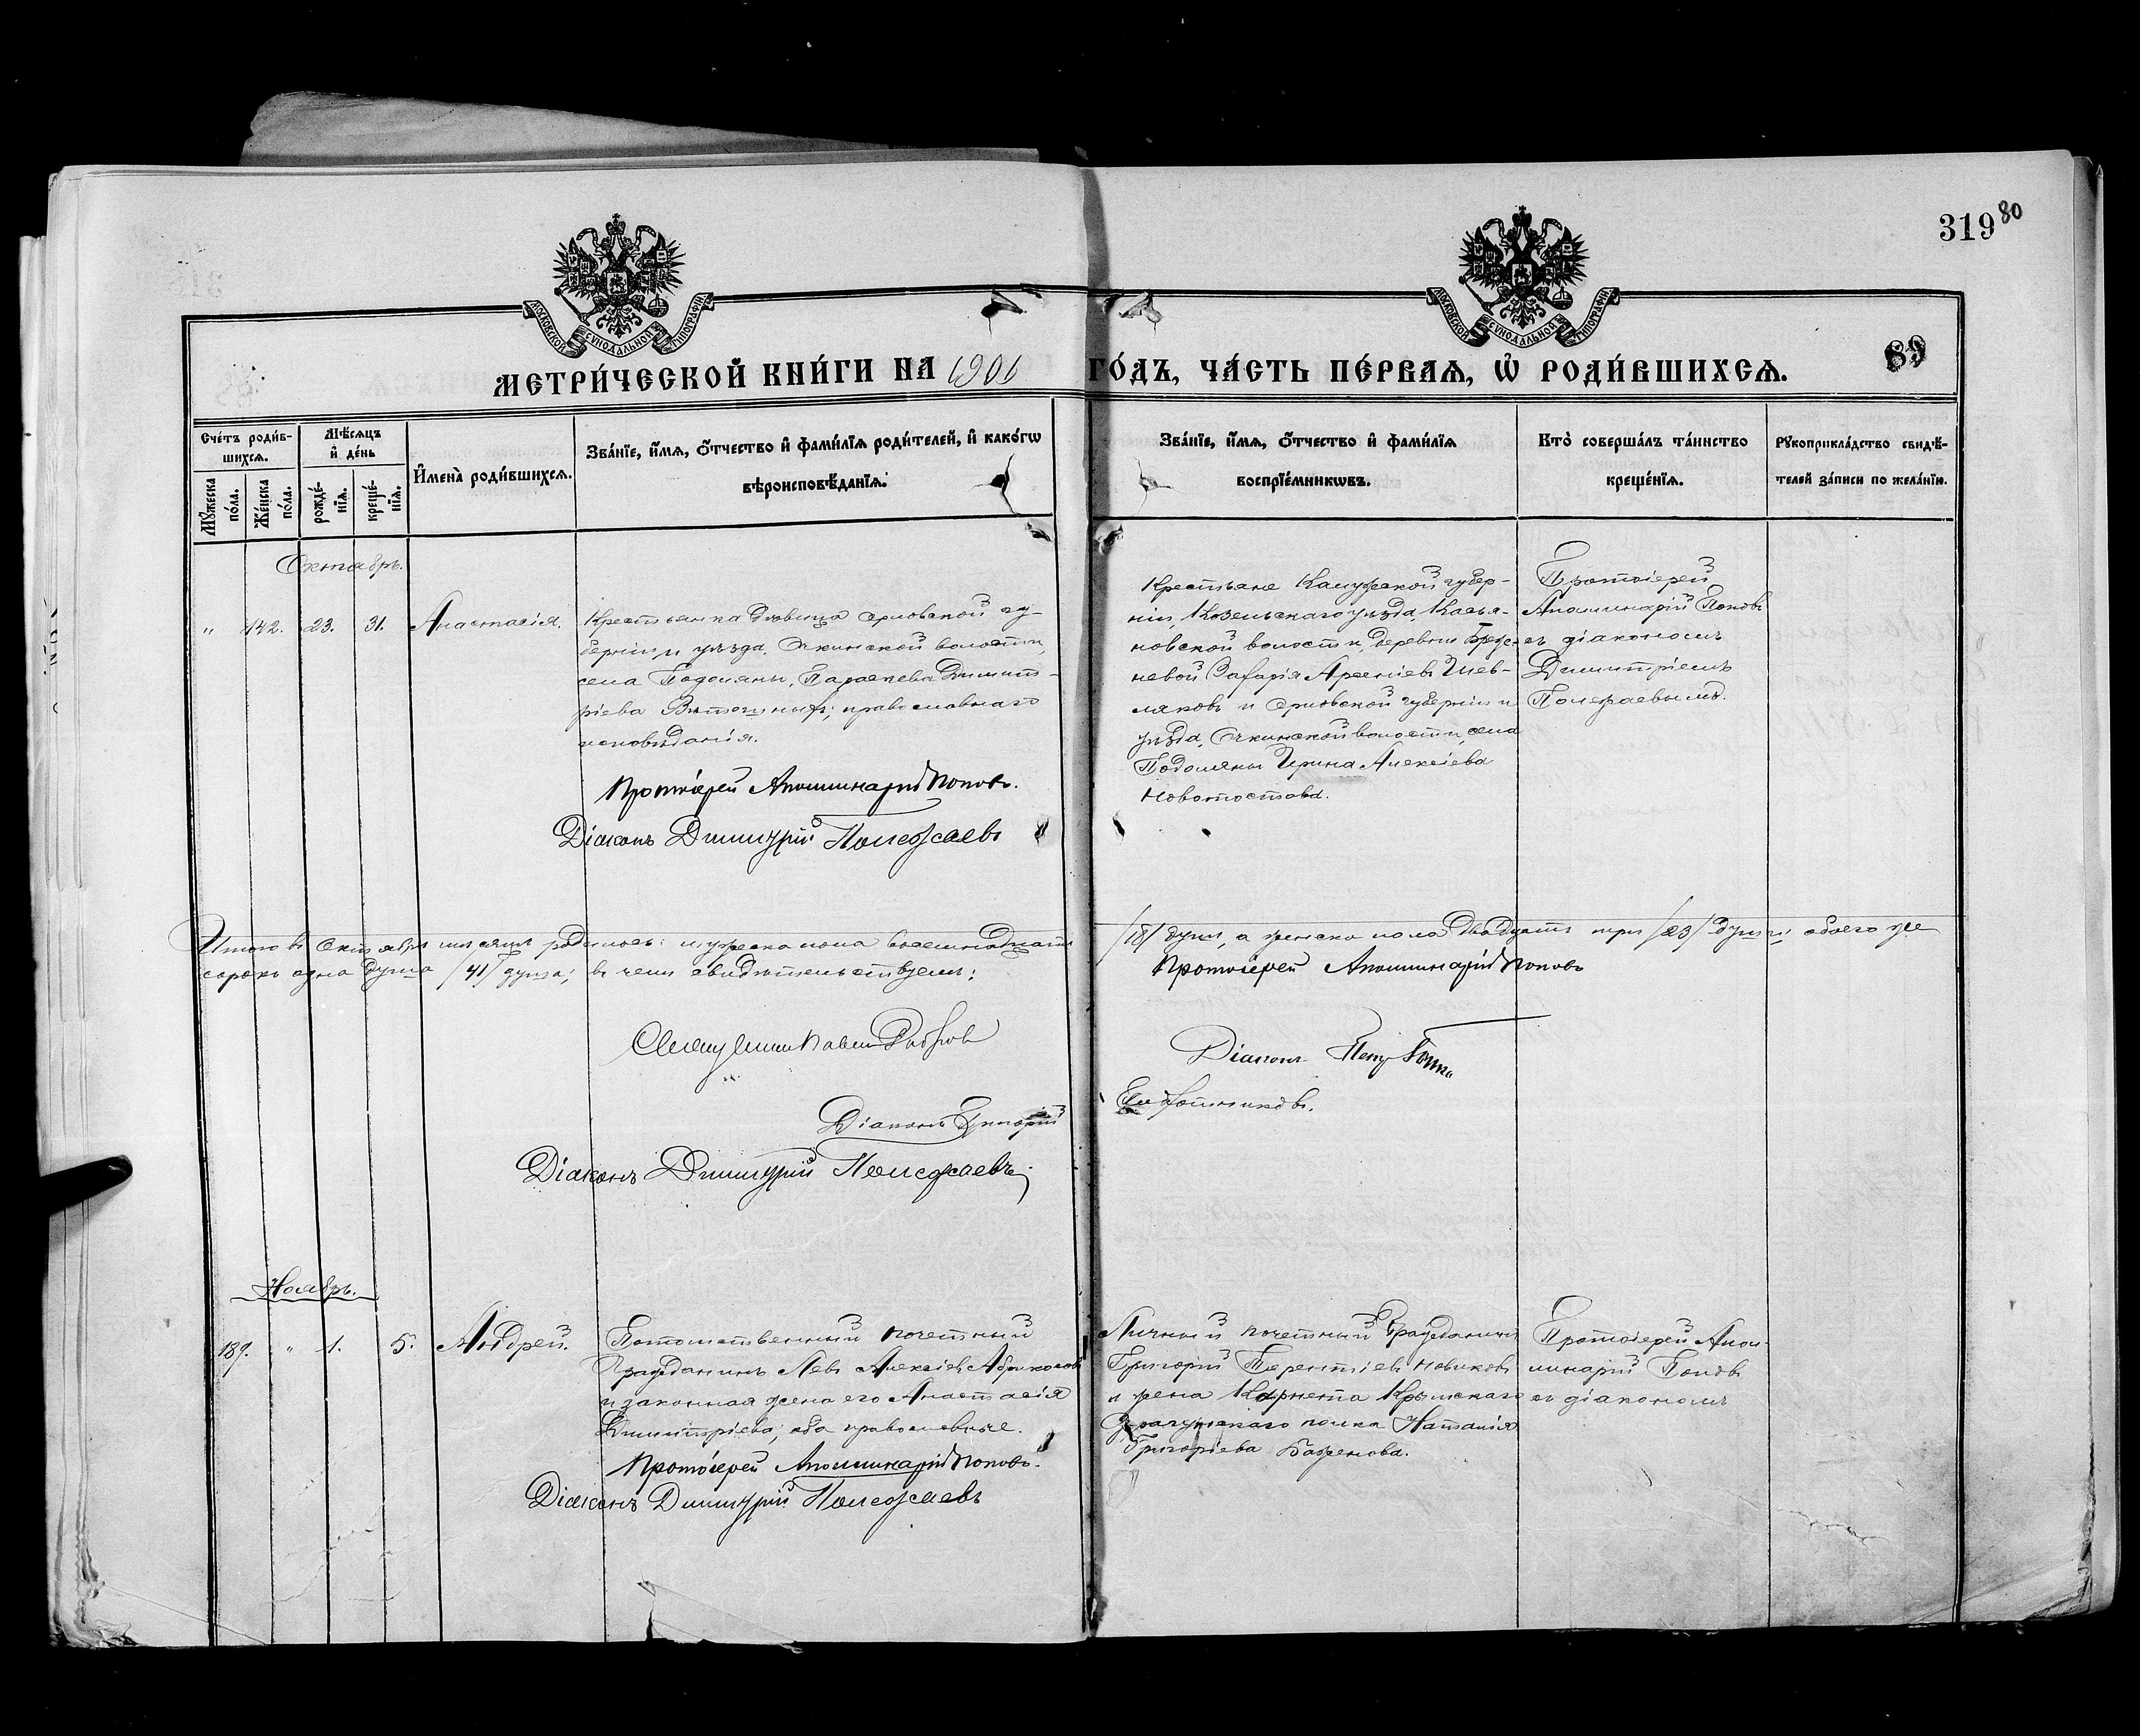 319 80
МОСКОВСКОЙ СѴНОДАЛЬНОЙ ТИПОГРАФІИ
МОСКОВСКОЙ СѴНОДАЛЬНОЙ ТИПОГРАФІИ
МЕТРИ́ЧЕСКОЙ КНИ́ГИ НА 1901 ГО́ДЪ, ЧА́СТЬ ПЕ́РВАѦ, Ѡ РОДИ́ВШИХСѦ.
Сче́тъ роди́в-
шихсѧ.
Мꙋжеска по́ла.
Же́нска по́ла.
Мѣ́сѧцъ и де́нь
рожде́-
нїѧ.
креще́-
нїѧ.
И҆мена̀ роди́вшихсѧ.
Зва́нїе, и҆́мѧ, ѻ҆́тчество и҆ фами́лїѧ роди́телей, и҆ како́гѡ
вѣроисповѣ́данїѧ.
Зва́нїе, и҆́мѧ, ѻ҆́тчество и҆ фами́лїѧ
воспрїе́мникѡвъ.
Кто̀ соверша́лъ та́инство
креще́нїѧ.
Рꙋкоприкла́дство свидѣ́-
телей за́писи по жела́нїю.
Октябрь.
" 142. 23. 31. Анастасія.
Крестьянка девица Орловской гу-
берніи и уѣзда,
села Подоляны, Параскева Димит-
ріева православнаго
исповѣданія.
Протоіерей Аполлинарій Поповъ.
Діаконъ Димитрій Полежаевъ
Крестьяне Калужской губер-
ніи, Козельскаго уѣзда, Касья-
новской волости, деревни
невой Захарія Арсеніевъ
и Орловской губерніи и
уѣзда, волости, села
Подоляны Ирина Алексіева
Протоіерей
Аполлинарій Поповъ
съ діакономъ
Димитріемъ
Полежаевымъ.
Итого въ Октябрѣ мѣсяцѣ родилось: мужеска пола восемнадцать /18/ душъ, а женска пола двадцать три /23/ души, обоего же
сорокъ одна душа /41/ душа; въ чемъ свидѣтельствуемъ:
Протоіерей Аполлинарій Поповъ
Священникъ Павелъ
Діаконъ Петръ
Діаконъ Григорій
Діаконъ Димитрій Полежаевъ
Ноябрь.
189. " 1. 5. Андрей.
Потомственный почетный
гражданинъ Левъ Алексіевъ Абрикосовъ
и законная жена его Анастасія
Димитріева, оба православные.
Протоіерей Аполлинарій Поповъ.
Діаконъ Димитрій Полежаевъ
Личный почетный гражданинъ
Григорій Терентіевъ Новиковъ
и жена Корнета Крымскаго
драгунскаго полка Наталія
Григоріева Баженова.
Протоіерей Апол-
линарій Поповъ
съ діакономъ